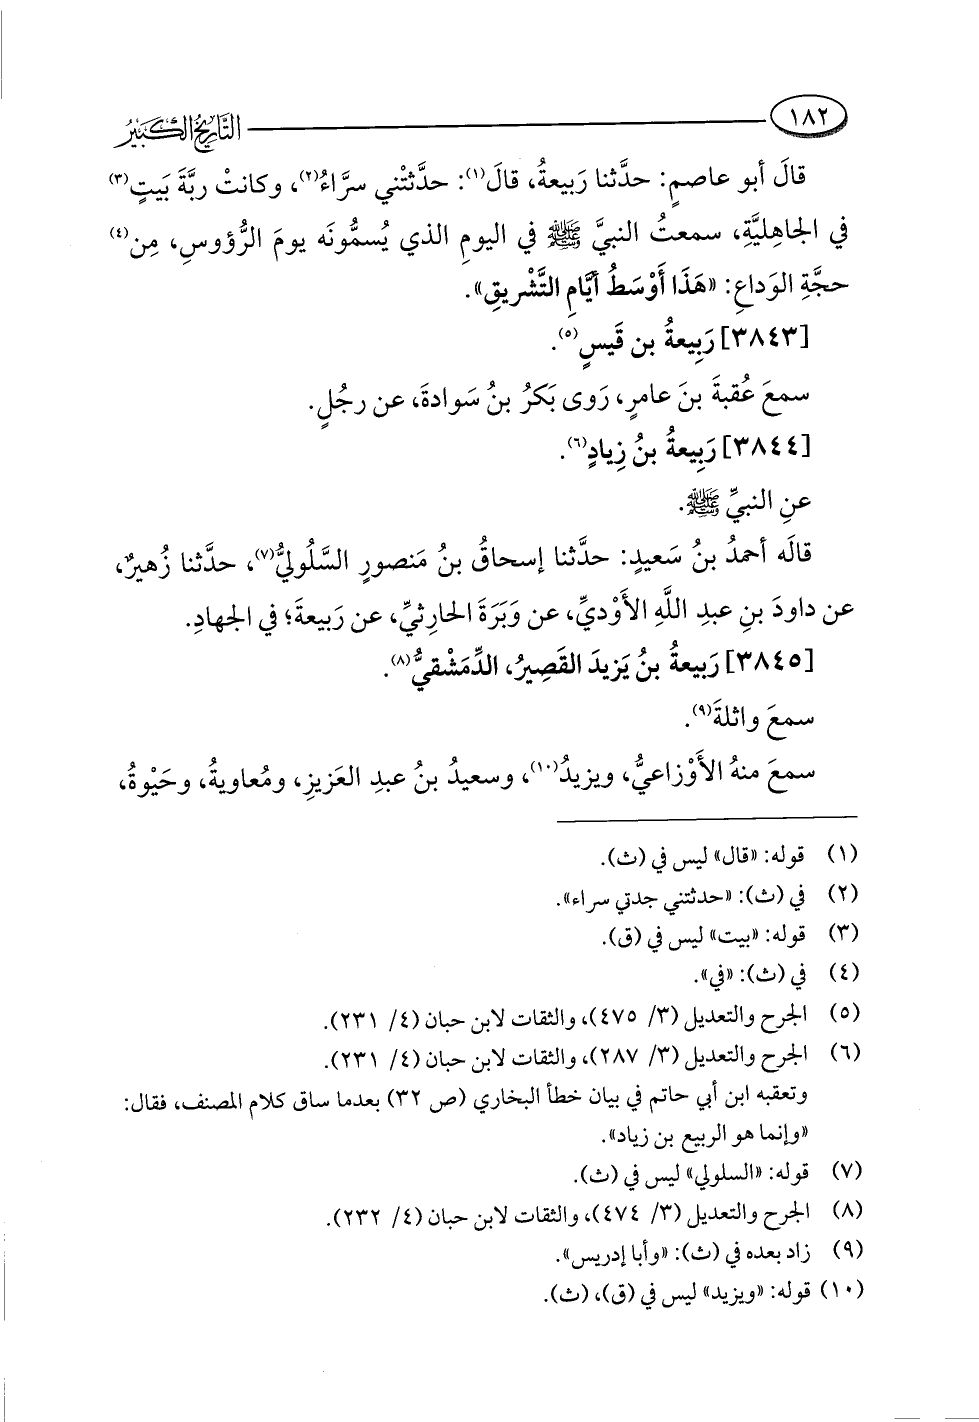 ١٨٢
التَّاريخُ الكَبيرُ
قالَ أبو عاصمٍ: حدَّثنا رَبيعةُ، قالَ(١): حدَّثتْني سرَّاءُ(٢)، وكانتْ ربَّةَ بَيتٍ(٣)
في الجاهِليَّةِ، سمعتُ النبيَّ ﷺ في اليومِ الذي يُسمُّونَه يومَ الرُّؤوسِ، مِن(٤)
حجَّةِ الوَداعِ: «هَذَا أَوْسَطُ أَيَّامِ التَّشْرِيقِ».
[٣٨٤٣] رَبِيعةُ بن قَيسٍ(٥).
سمعَ عُقبةَ بنَ عامرٍ، رَوى بَكرُ بنُ سَوادةَ، عن رجُلٍ.
[٣٨٤٤] رَبِيعةُ بنُ زِيادٍ(٦).
عنِ النبيِّ ﷺ.
قالَه أحمدُ بنُ سَعيدٍ: حدَّثنا إسحاقُ بنُ مَنصورٍ السَّلُوليُّ(٧)، حدَّثنا زُهيرٌ،
عن داودَ بنِ عبدِ اللَّهِ الأَوْديِّ، عن وَبَرَةَ الحارِثيِّ، عن رَبيعةَ؛ في الجهادِ.
[٣٨٤٥] رَبيعةُ بنُ يَزيدَ القَصِيرُ، الدِّمَشْقيُّ(٨).
سمعَ واثلةَ(٩).
سمعَ منهُ الأَوْزاعيُّ، ويزيدُ(١٠)، وسعيدُ بنُ عبدِ العَزيزِ، ومُعاويةُ، وحَيْوةُ،
(١) قوله: «قال» ليس في (ث).
(٢) في (ث): «حدثتني جدتي سراء».
(٣) قوله: «بيت» ليس في (ق).
(٤) في (ث): «في».
(٥) الجرح والتعديل (٣/ ٤٧٥)، والثقات لابن حبان (٤/ ٢٣١).
(٦) الجرح والتعديل (٣/ ٢٨٧)، والثقات لابن حبان (٤/ ٢٣١).
وتعقبه ابن أبي حاتم في بيان خطأ البخاري (ص ٣٢) بعدما ساق كلام المصنف، فقال:
«وإنما هو الربيع بن زياد».
(٧) قوله: «السلولي» ليس في (ث).
(٨) الجرح والتعديل (٣/ ٤٧٤)، والثقات لابن حبان (٤/ ٢٣٢).
(٩) زاد بعده في (ث): «وأبا إدريس».
(١٠) قوله: «ويزيد» ليس في (ق)، (ث).